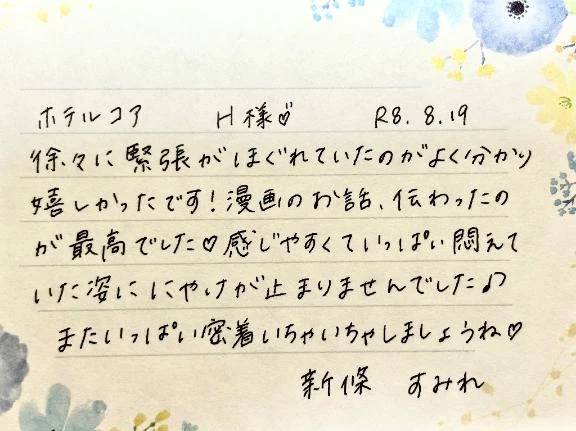 ホテルコア H様♡ R8.8.19
徐々に緊張がほぐれていたのがよく分かり
嬉しかったです!漫画のお話、伝わったの
が最高でした♡感じやすくていっぱい悶えて
いた姿ににやけが止まりませんでした♪
またいっぱい密着いちゃいちゃしましょうね♡
新條 すみれ